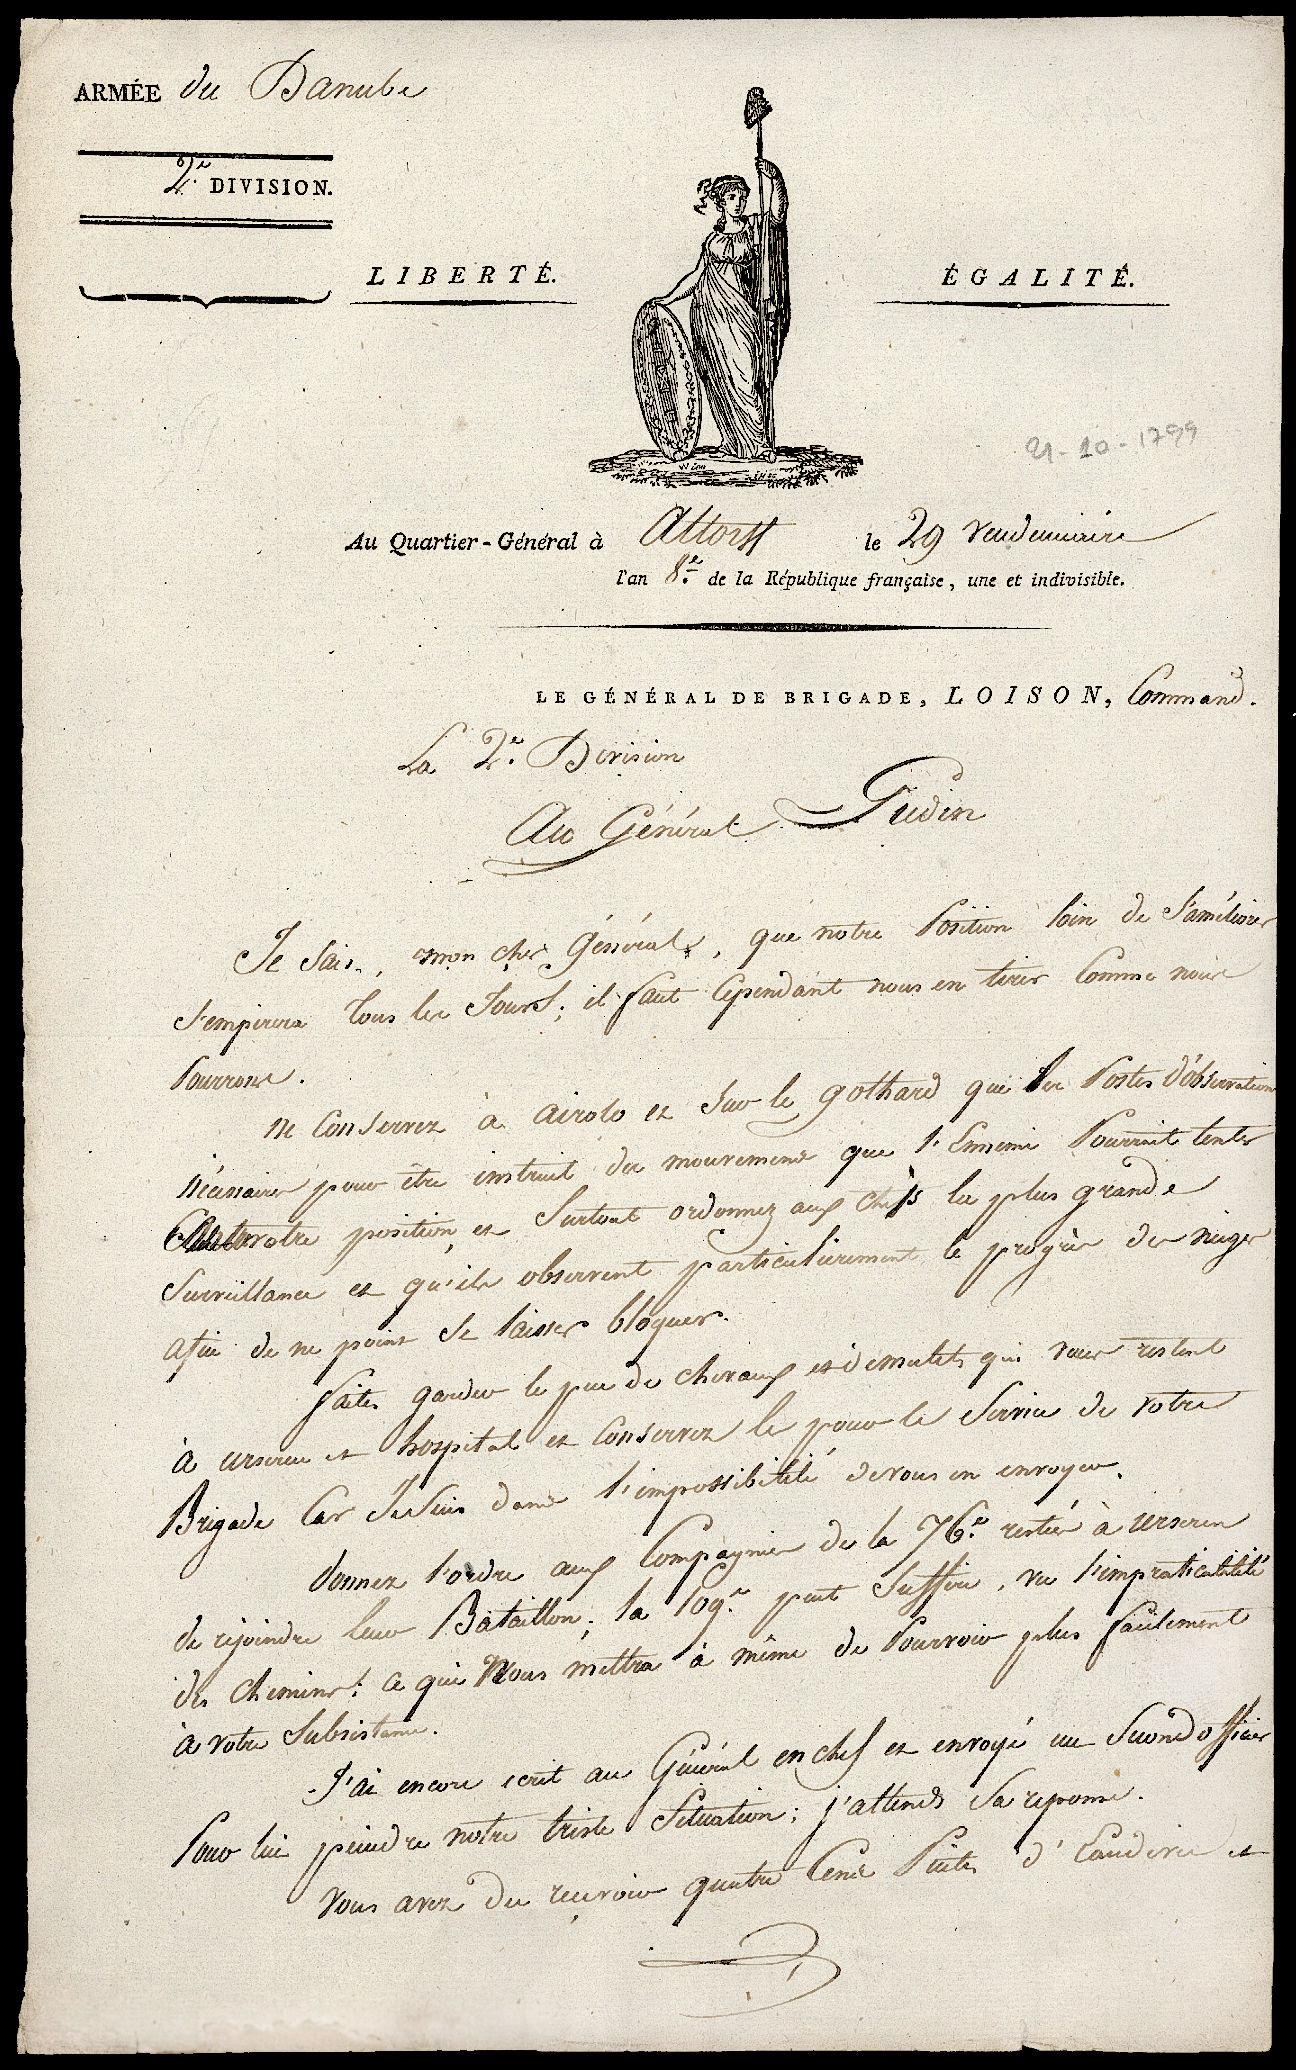 ARMÉE du Danube
2.e DIVISION.
LIBERTÉ.
ÉGALITÉ.
21-10-1799
Au Quartier-Général à Altorff le 29 Vendemiaire
l'an 8.e de la République française, une et indivisible.
LE GÉNÉRAL DE BRIGADE, LOISON, Command.
La 2.e Division
Au Général Gudin
Je sais, mon cher Général, que notre Position loin de s'améliorer
s'empirera tous les Jours; il faut cependant nous en tirer comme nous
Pourrons.
Ne conservez à airolo et sur le gothard que les Postes d'observation
nécessaires pour être instruit des mouvemens que l'Ennemi Pourrait tenter
votre position, et surtout ordonnez aux chefs la plus grande
surveillance et qu'ils observent particulièrement le progrès des neiges
afin de ne point se laisser bloquer.
faites garder le peu de chevaux et de mulets qui vous restent
à urseren et hospital et conservez le pour le service de votre
Brigade car Je suis dans l'impossibilité de vous en envoyer.
donnez l'ordre aux Compagnies de la 76.e restée à urseren
de rejoindre leur Bataillon; la 109.e peut suffire, vu l'impraticabilité
des chemins; ce qui Nous mettra à même de Pourvoir plus facilement
à votre subsistance.
J'ai encore ecrit au Général en chef et envoyé un second officier
Pour lui peindre notre triste situation; j'attends sa reponse.
Vous avez du recevoir quatre cens Pintes d'Eaudevie et